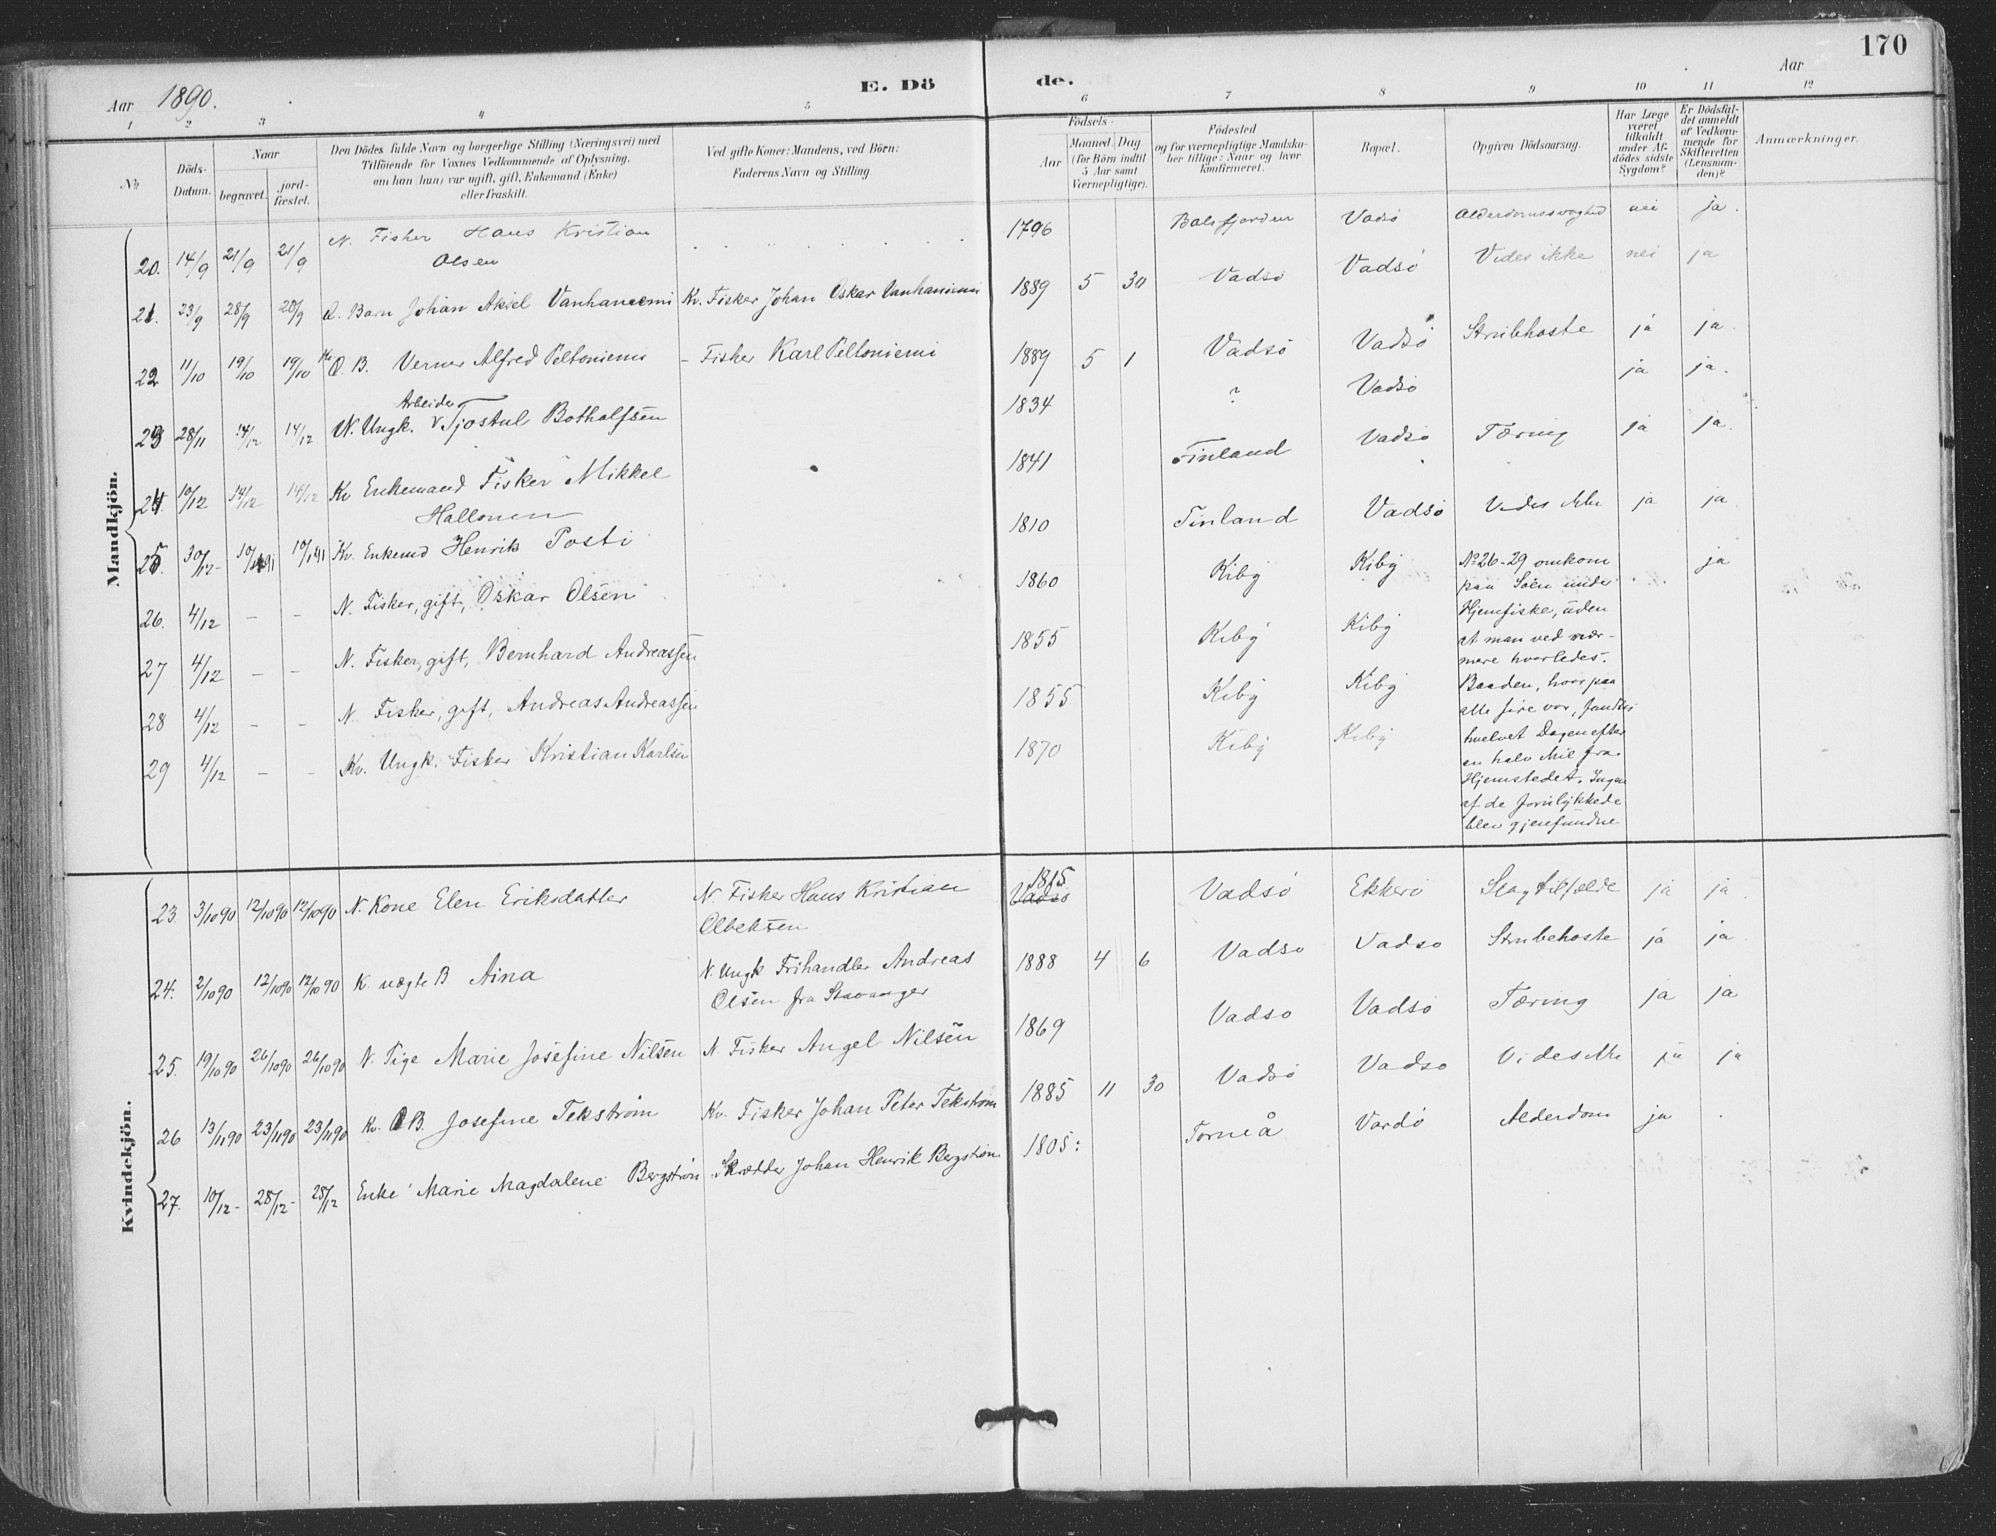 170
Aar 1890.
E. Dö de.
Aar
1 2 3 4 5 6 7 8 9 10 11 12
No
Döds-
Datum.
Naar
begravet.
jord-
fæstet.
Den Dödes fulde Navn og borgerlige Stilling (Næringsvei) med
Tilföiende for Voxnes Vedkommende af Oplysning,
om han (hun) var ugift, gift, Enkemand (Enke)
eller fraskilt.
Ved gifte Koner: Mandens, ved Börn:
Faderens Navn og Stilling.
Födsels-
Aar
Maaned. Dag
(for Börn indtil
5 Aar samt
Værnepligtige).
Födested
og for værnepligtige Mandska-
ber tillige: Naar og hvor
konfirmeret.
Bopæl.
Opgiven Dödsaarsag.
Har Læge
været
tilkaldt
under Af-
dödes sidste
Sygdom?
Er Dödsfal-
det anmeldt
af Vedkom-
mende for
Skifteretten
(Lensman-
den)?
Anmærkninger.
Mandkjön.
20. 14/9 21/9 21/9 N. Fisker Hans Kristian 1796 Balsfjorden Vadsö Alderdomssvaghed nei ja.
Olsen
21. 23/9 28/9 28/9 Q. Barn Johan Aksel Vanhaniemi Kv. Fisker Johan Oskar Vanhaniemi 1889 5 30 Vadsö Vadsö Vides ikke nei ja
22 11/10 19/10 19/10 Kv Q. B. Verner Alfred Peltoniemi – Fisker Karl Peltoniemi 1889 5 1 Vadsö Vadsö Strubehoste ja ja.
Arbeider
23 28/11 14/12 14/12 N. Ungk. Tjostul Botholfsen 1834 ? Vadsö ja ja.
24. 10/12 14/12 14/12 Kv Enkemand Fisker Mikkel 1841 Finland Vadsö Tæring ja ja.
Hallonen
25. 30/12- 10/1 91 10/1 91 Kv. Enkemd Henrik Posti 1810 Finland Vadsö Vides ikke ja ja.
26. 4/12 – – N. Fisker, gift, Oskar Olsen 1860 Kiby Kiby ja
27 4/12 – – N. Fisker, gift, Bernhard Andreassen 1855 Kiby Kiby
28 4/12 – – N. Fisker, gift, Andreas Andreassen 1855 Kiby Kiby
29 4/12 – – Kv. Ungk. Fisker Kristian Karlsen 1870 Kiby Kiby
No 26-29 omkom
paa Söen under
Hjemfiske, uden
at man ved nær-
mere hvorledes.
Baaden, hvor paa
alle fire var, fandtes
hvelvet Dagen efter
en halv Mil fra
Hjemstedet. Ingen
af de forulykkede
blev gjenfundne
Kvindekjön.
1815
23. 3/10 90 12/10 90 12/10 90 N. Kone Elen Eriksdatter N. Fisker Hans Kristian Vadsö Vadsö Ekkerö Slagtilfælde ja ja
24. 2/10 90 12/10 90 12/10 90 K. uægte B Aina N. Ungk Frihandler Andreas 1888 4 6 Vadsö Vadsö Strubehoste ja ja
Olsen fra Stavanger
25. 19/10 90 26/10 90 26/10 90 N. Pige Marie Josefine Nilsen N. Fisker Angel Nilsen 1869 Vadsö Vadsö Tæring ja ja
26 13/11 90 23/11 90 23/11 90 Kv. B. Josefine Tekström Kv. Fisker Johan Peter Tekström 1885 11 30 Vadsö Vadsö Vides ikke ja ja
27. 10/12- 28/12- 28/12 Enke Marie Magdalene Bergström Skrædder Johan Henrik Bergström 1805: Torneå Vardö Alderdom ja